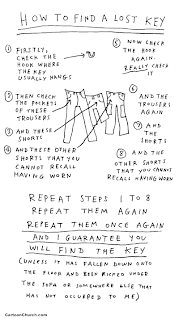 HOW TO FIND A LOST KEY
① FIRSTLY,
CHECK THE
HOOK WHERE
THE KEY
USUALLY HANGS
② THEN CHECK
THE POCKETS
OF THESE
TROUSERS
③ AND THESE
SHORTS
④ AND THESE OTHER
SHORTS THAT YOU
CANNOT RECALL
HAVING WORN
⑤ NOW CHECK
THE HOOK
AGAIN.
REALLY CHECK
IT
⑥ AND THE
TROUSERS
AGAIN
⑦ AND
THE
SHORTS
⑧ AND THE
OTHER SHORTS
THAT YOU CANNOT
RECALL HAVING WORN
REPEAT STEPS 1 TO 8
REPEAT THEM AGAIN
REPEAT THEM ONCE AGAIN
AND I GUARANTEE YOU
WILL FIND THE KEY
(UNLESS IT HAS FALLEN DOWN ONTO
THE FLOOR AND BEEN KICKED UNDER
THE SOFA OR SOMEWHERE ELSE THAT
HAS NOT OCCURRED TO ME)
CartoonChurch.com